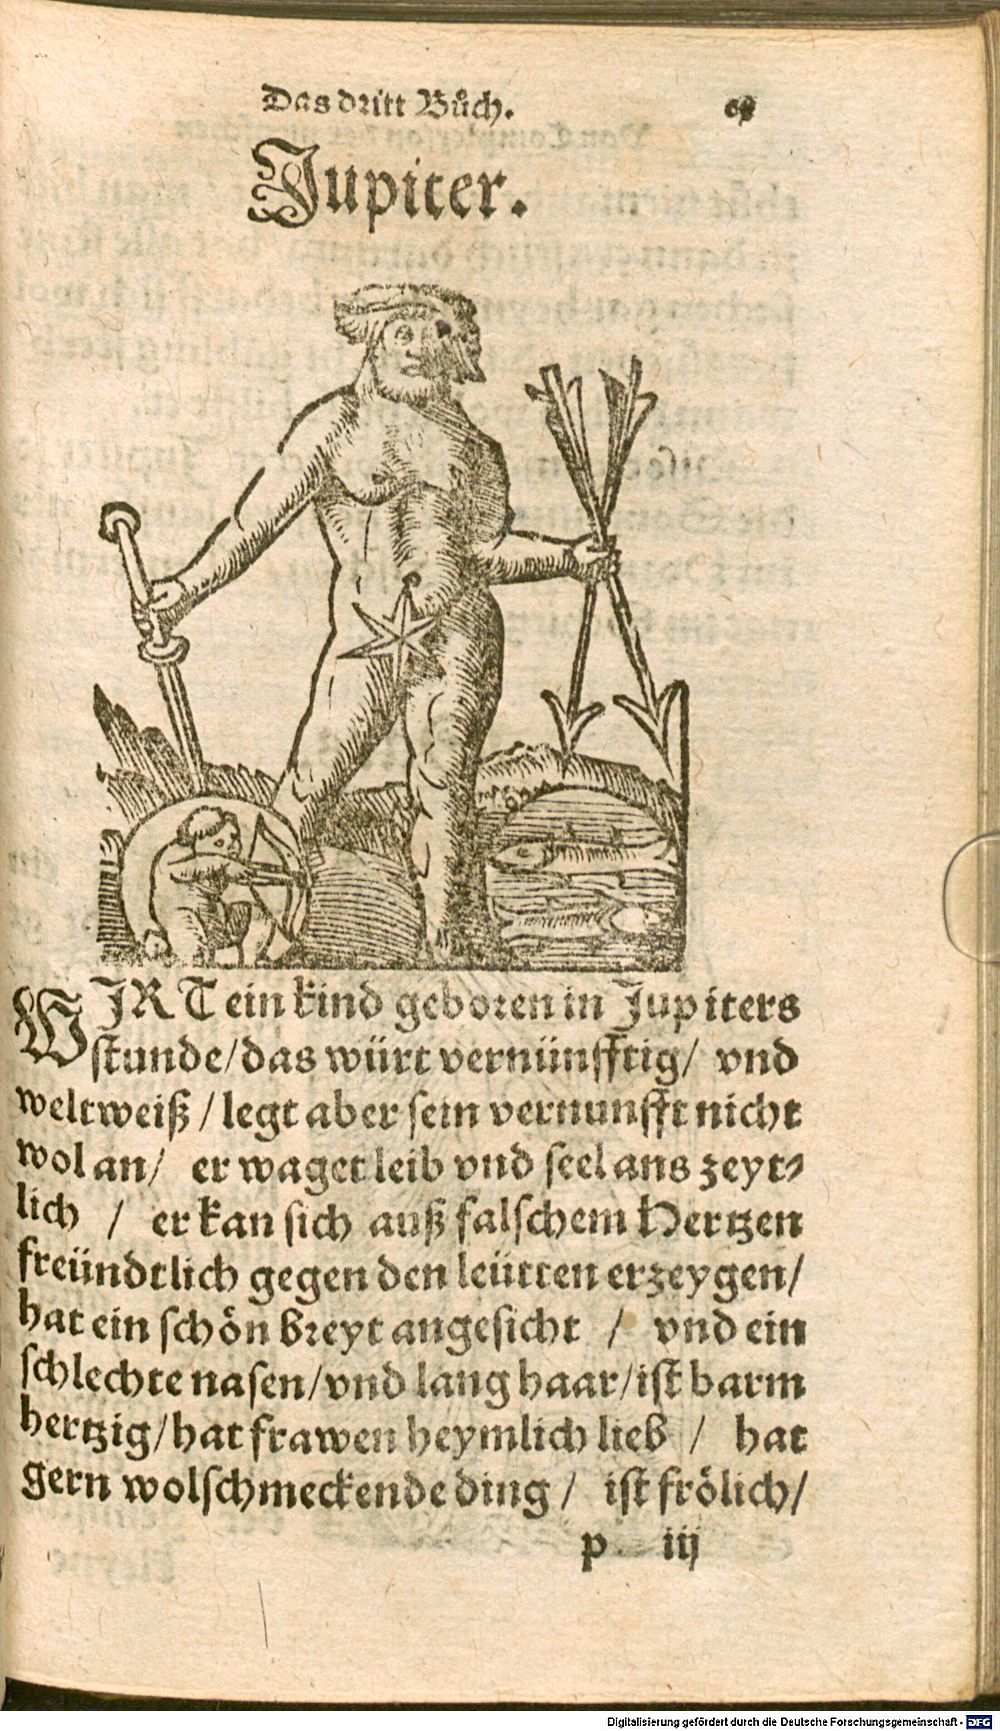 Das dritt Bůch.
Jupiter.
WJRT ein kind geboren in Jupiters
stunde/das würt vernünfftig/ vnd
weltweiß/legt aber sein vernunfft nicht
wol an/ er waget leib vnd seel ans zeyt⸗
lich / er kan sich auß falschem Hertzen
freündtlich gegen den leütten erzeygen/
hat ein schön breyt angesicht / vnd ein
schlechte nasen/vnd lang haar/ist barm
hertzig/hat frawen heymlich lieb / hat
gern wolschmeckende ding / ist frölich/
p iij
Digitalisierung gefördert durch die Deutsche Forschungsgemeinschaft - DFG